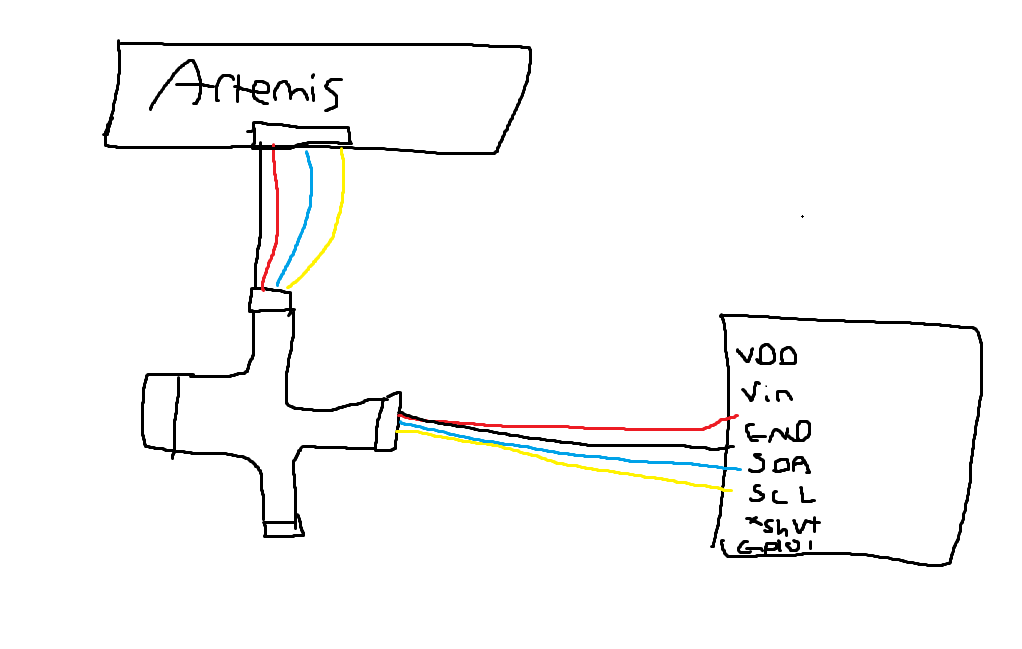 Artemis
VDD
Vin
GND
SDA
SCL
*Shut
GPIO1